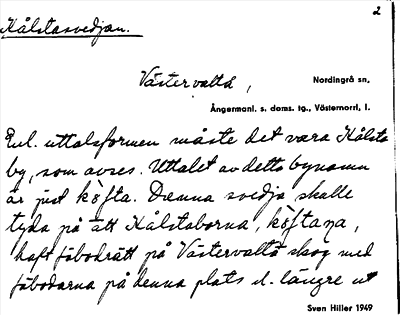 2
Kålstasvedjan.
Västervalta, Nordingrå sn,
Ångermanl. s. doms. tg., Västernorrl. l.
Enl. uttalsformen måste det vara Kålsta
by, som avses. Uttalet av detta bynamn
är just köfta. Denna svedja skulle
tyda på att Kålstaborna, köftana,
haft fäbodrätt på Västervalta skog med
fäbodarna på denna plats el. längre ut
Sven Hiller 1949